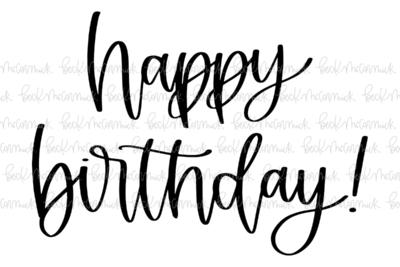 happy
birthday!